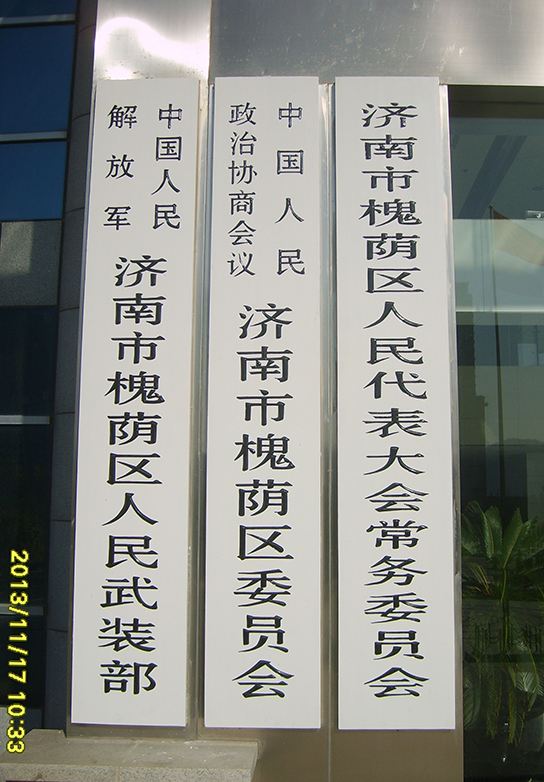 济南市槐荫区人民代表大会常务委员会
中国人民
政治协商会议
济南市槐荫区委员会
中国人民
解放军
济南市槐荫区人民武装部
2013/11/17 10:33